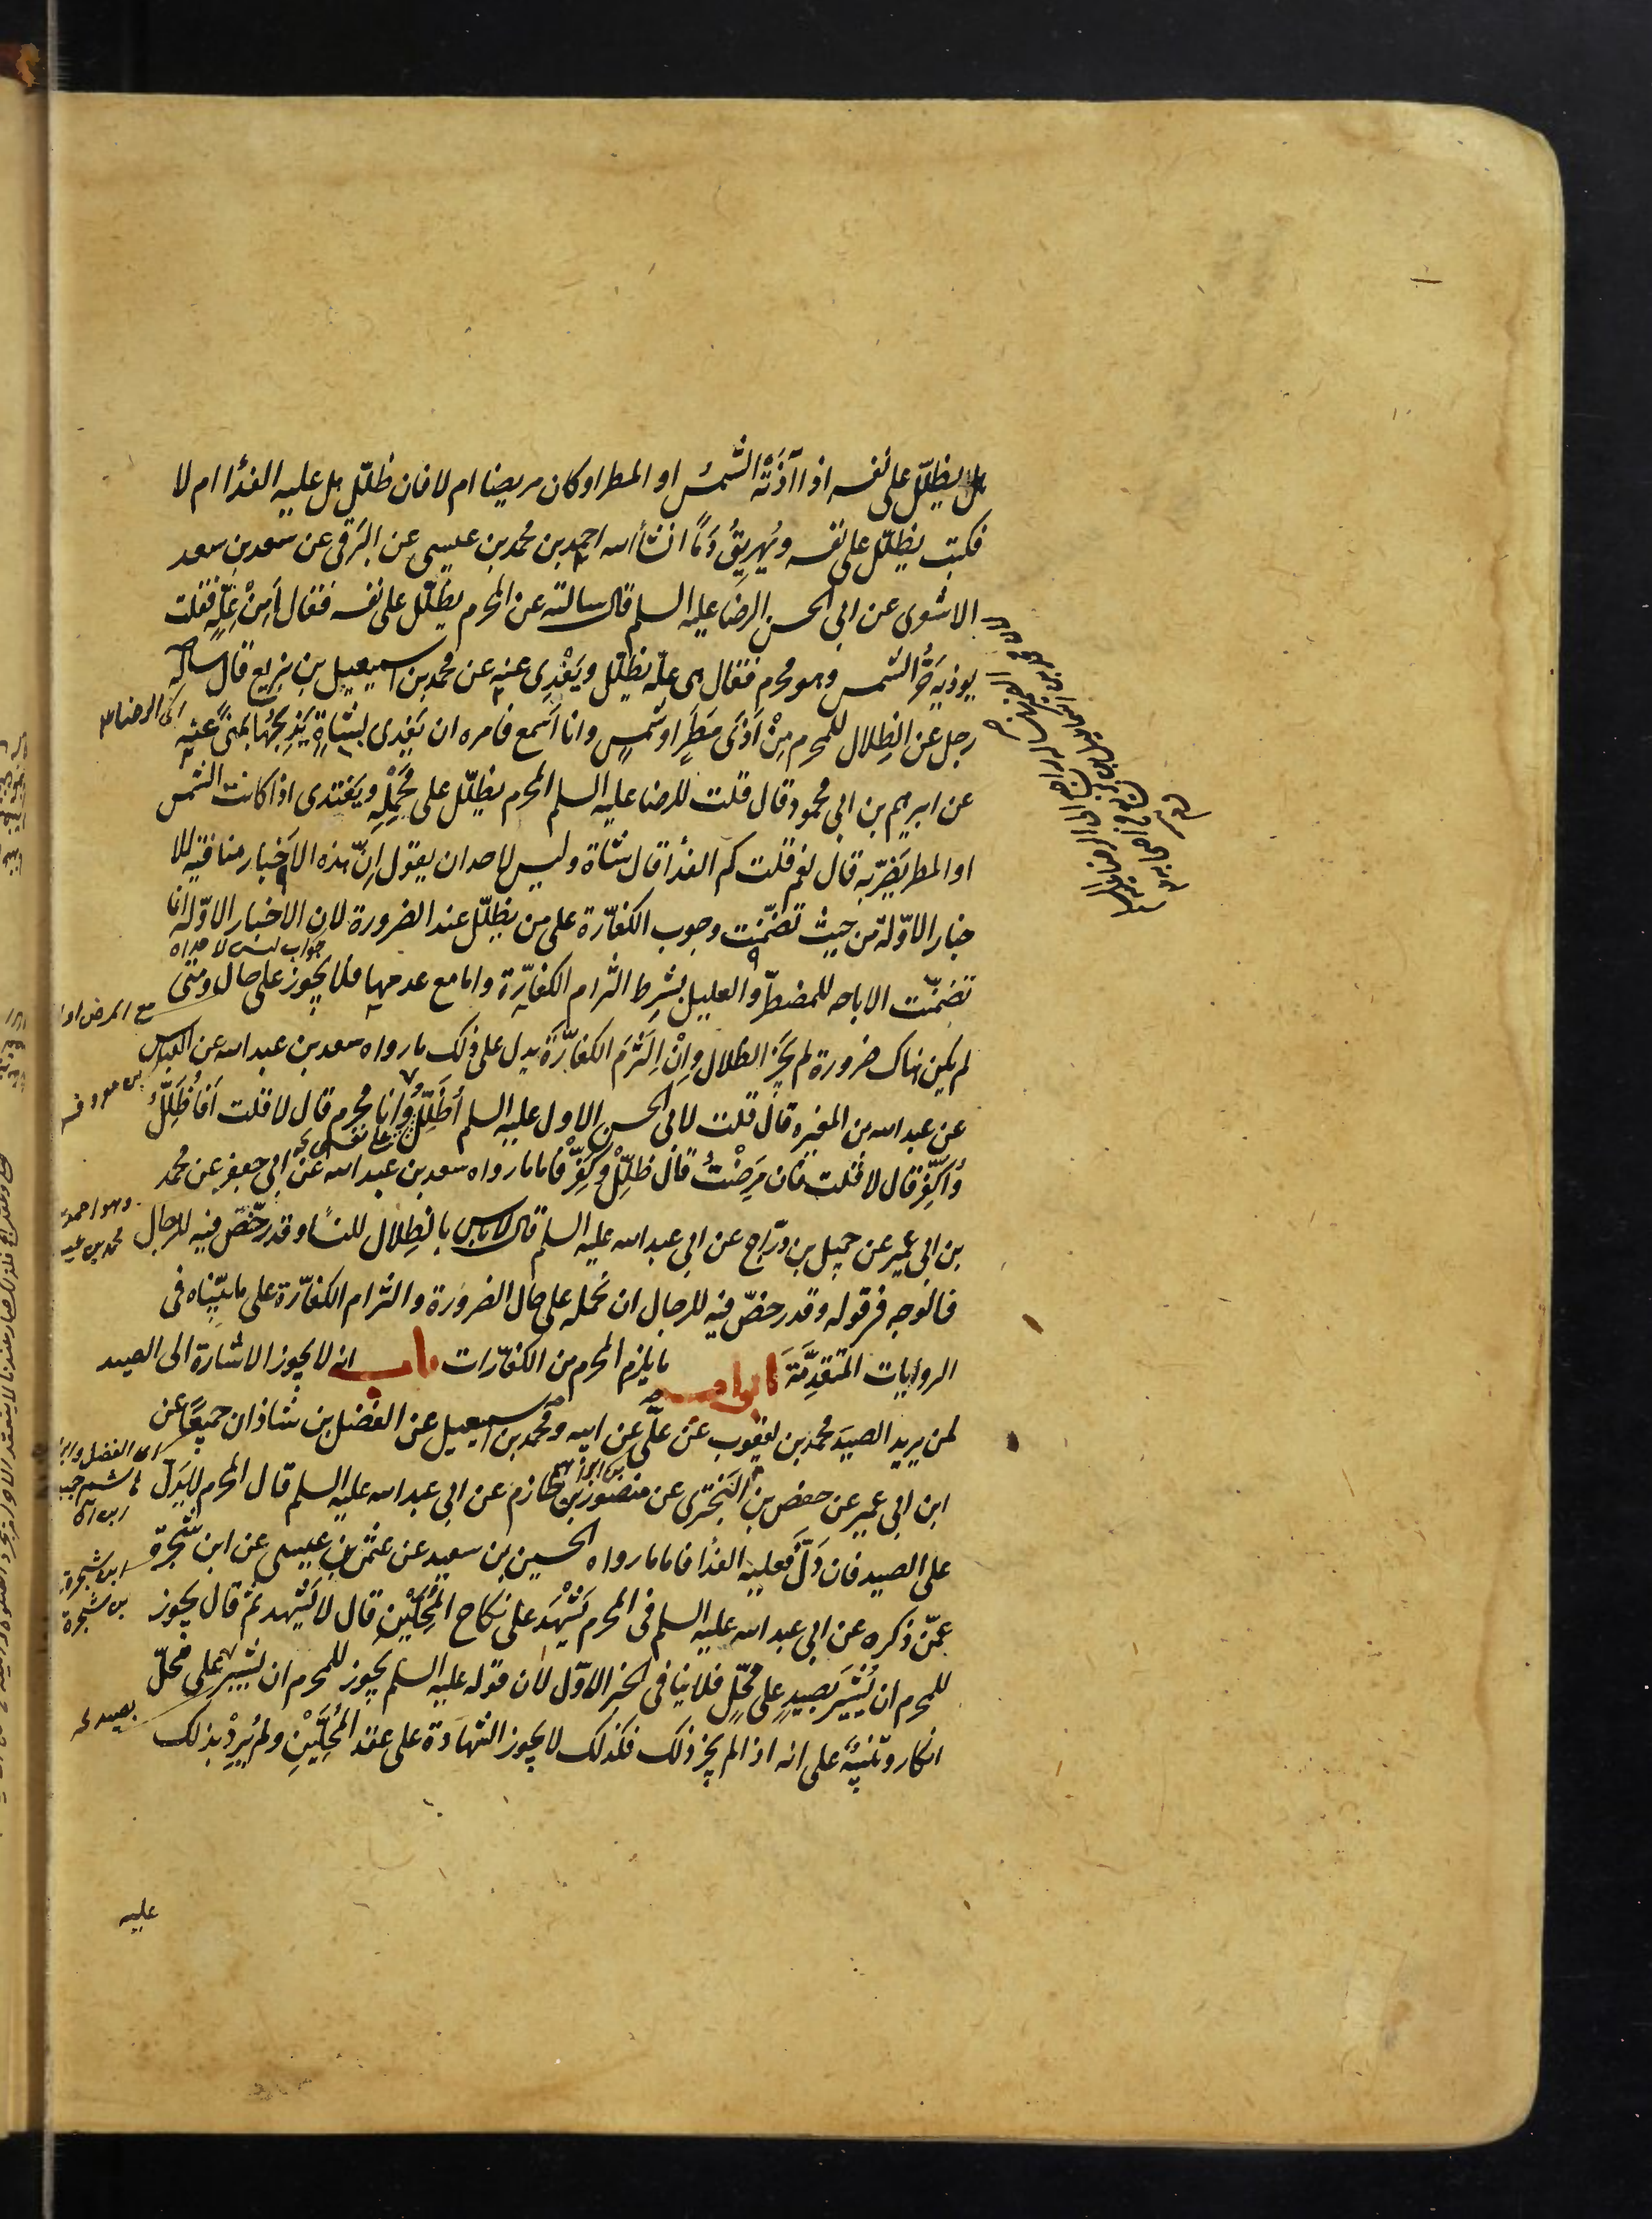 هل يظلّل على نفسه اذا آذَتْه الشمسُ او المطر او كان مريضا ام لا فان ظلّل هل عليه الفدأ ام لا
فكتب يظلّل على نفسه ويُهريقُ دَمًا انشأ الله احمد بن محمد بن عيسى عن البرقى عن سعد بن سعد
الاشعرى عن ابى الحسن الرضا عليه السلم قال سالته عن المحرم يظلّل على نفسه فقال أمِنْ عِلّةٍ فقلت
يوذيه حَرُّ الشمس وهو محرم فقال هى علّة يظلّل ويَفْدِى عنه عن محمد بن اسمعيل بن بزيع قال ساله
رجل عن الظِلال للمحرم مِنْ اَذَى مَطَرٍ او شمسٍ وانا اَسمع فامره ان يَفدى بشاةٍ يَذبَحُها بمنىً عنه
الى الرضا
عن ابرهيم بن ابى محمود قال قلت للرضا عليه السلم المحرم يظلّل على مَحْمِلِهِ ويَفتدى اذا كانت الشمس
او المطر يَضُرّ به قال نعم قلت كم الفدأ قال شاة وليس لاحد ان يقول اِنّ هذه الاَخبار منافية للا
خبار الاوّلة من حيث تضمّنت وجوب الكفّارة على من يظلّل عند الضرورة لان الاخبار الاوّلة انما
جواب ليس لاحد
تضمنّت الاباحه للمضطرّ والعليل بشرط التزام الكفّارة واما مع عدمها فلا يجوز على حال ومتى
لم يكن هناك ضرورة لم يَجُزِ الظلال واِنْ اِلتَزَمَ الكفّارَةَ يدل على ذلك ما رواه سعد بن عبد الله عن العباس
عن عبد الله بن المغيره قال قلت لابى الحسن الاول عليه السلم اُظَلِّلُ وانا محرم قال لا قلت اَفَاُظَلِّلُ
واُكَفِّر قال لا قلت فان مَرِضْتُ قال ظَلِّلْ وكَفِّرْ فاما ما رواه سعد بن عبد الله عن ابى جعفر عن محمد
وهو احمد بن
محمد بن عيسى
بن ابى عمير عن جميل بن درّاج عن ابى عبد الله عليه السلم قال لا باس بالظِلال للنسأ وقد رخّصَ فيه للرجال
فالوجه فى قوله وقد رخصّ فيه للرجال ان نحمله على حال الضرورة والتزام الكفّارة على ما بيّناه فى
الروايات المتقدِّمَة ابواب ما يلزم المحرم من الكفّارات باب انه لا يجوز الاشارة الى الصيد
لمن يريد الصيدَ محمد بن يعقوب عن علّى عن ابيه ومحمد بن اسمعيل عن الفضل بن شاذان جميعًا عن
ابن ابى عمير عن حفص بن البَخْتَرى عن منصور بن حازم عن ابى عبد الله عليه السلم قال المحرم لا يدلّ
على الصيد فان دَلَّ فعليه الفدأ فاما ما رواه الحسين بن سعيد عن عثمن بن عيسى عن ابن شجرة
ابن شجرة
بن شجرة
عمّن ذكره عن ابى عبد الله عليه السلم فى المحرم يَشْهَد على نكاح المُحِلَّيْنِ قال لا يَشْهد ثم قال يجوز
للمحرم ان يُشيرَ بصيدٍ على مُحِلٍّ فلا ينافى الخبر الاوّل لان قوله عليه السلم يجوز للمحرم ان يشير على محلّ
بصيد
انكار وتنبيهٌ على انه اذا لم يجز ذلك فكذلك لا يجوز الشهادة على عقد المُحِلَّيْنِ ولم يُرِدْ بذلك
عليه